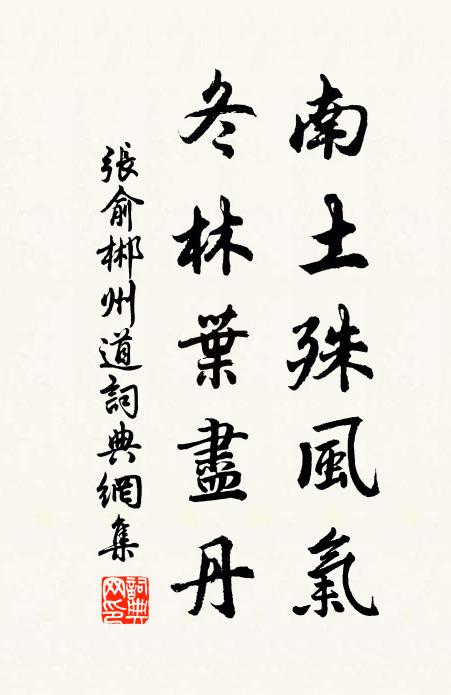 南土殊風氣
冬林葉盡丹
張俞郴州道詞典網集
詞典網印